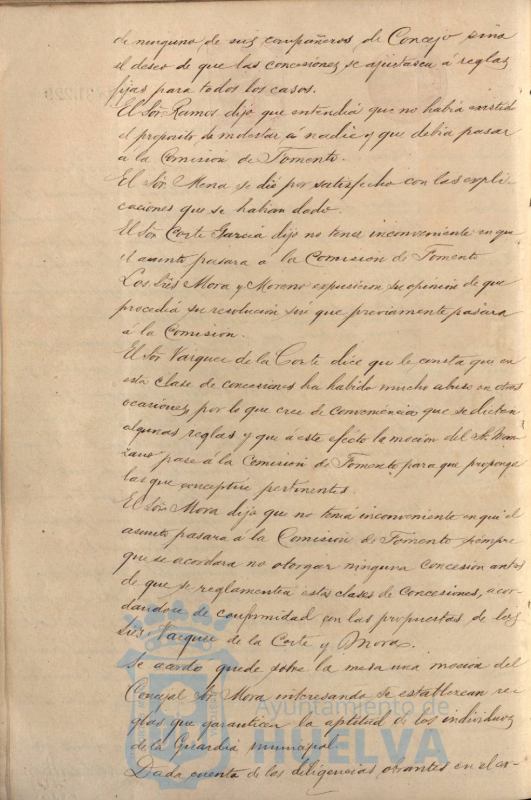 de ninguno de sus compañeros de Concejo sino
el deseo de que las concesiones se ajustasen á reglas
fijas para todos los casos.
El Sor Ramos dijo que entendia que no habia existido
el proposito de molestar á nadie y que debia pasar
á la Comision de Fomento.
El Sor Mena se dió por satisfecho con las expli-
caciones que se habian dado.
El Sor Corte Garcia dijo no tener inconveniente en que
el asunto pasara á la Comision de Fomento
Los Sres Mora y Moreno expusieron su opinion de que
procedia su resolucion sin que previamente pasara
á la Comision.
El Sor Vazquez de la Corte dice que le consta que en
esta clase de concesiones ha habido mucho abuso en otras
ocasiones, por lo que cree de conveniencia que se dicten
algunas reglas y que á este efecto la mocion del Sr. Man-
zano pase á la Comision de Fomento para que proponga
las que conceptúe pertinentes.
El Sor Mora dijo que no tenia inconveniente en que el
asunto pasara á la Comision de Fomento siempre
que se acordara no otorgar ninguna concesion antes
de que se reglamenten estas clases de concesiones, acor-
dandose de conformidad con las propuestas de los
Sres Vazquez de la Corte y Mora.
Se acordó quede sobre la mesa una mocion del
Concejal Sor Mora interesando se establezcan re-
glas que garanticen la aptitud de los individuos
de la Guardia municipal.
Dada cuenta de las diligencias obrantes en el ex-
Ayuntamiento de
HUELVA